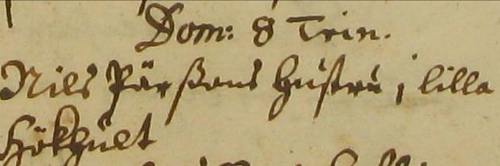 Dom: 8 Trin.
Nils Pärßons hustru i lilla
Hökhult